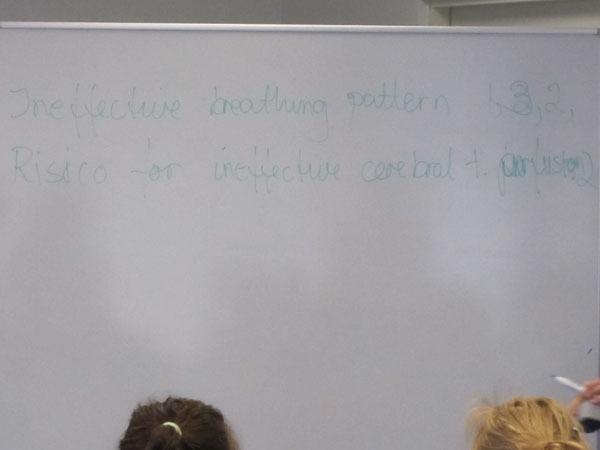 Ineffective breathing pattern 1, 3, 2,
Risico for ineffective cerebral t. perfusion 2